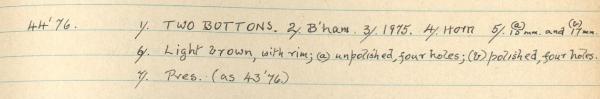 44'76. 1/. TWO BUTTONS. 2/. B'ham. 3/. 1975. 4/. Horn 5/. (a) 15mm. and (b) 17mm.
6/. Light brown, with rim; (a) unpolished, four holes; (b) polished, four holes.
7/. Pres. (as 43'76)